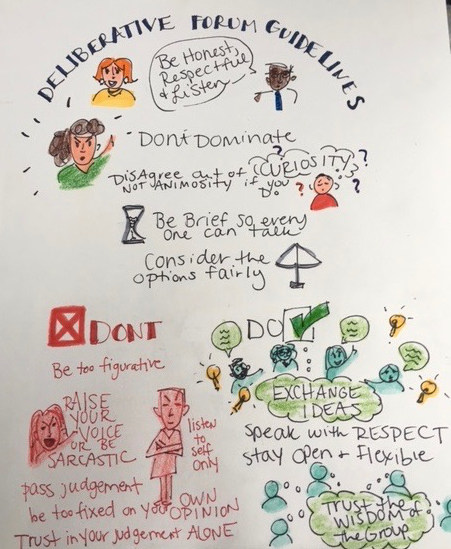 DELIBERATIVE FORUM GUIDELINES
Be Honest,
Respectful
& Listen
Don't DOMINATE
DISAgree out of CURIOSITY
NOT ANIMOSITY if you
Do
Be Brief so every
one can talk
Consider the
options fairly
DONT
Be too figurative
RAISE
YOUR
VOICE
OR BE
SARCASTIC
listen
to
self
only
pass judgement
be too fixed on your OWN
OPINION
Trust in your judgement ALONE
DO
EXCHANGE
IDEAS
Speak with RESPECT
stay open + flexible
Trust the
WISDOM of
the Group